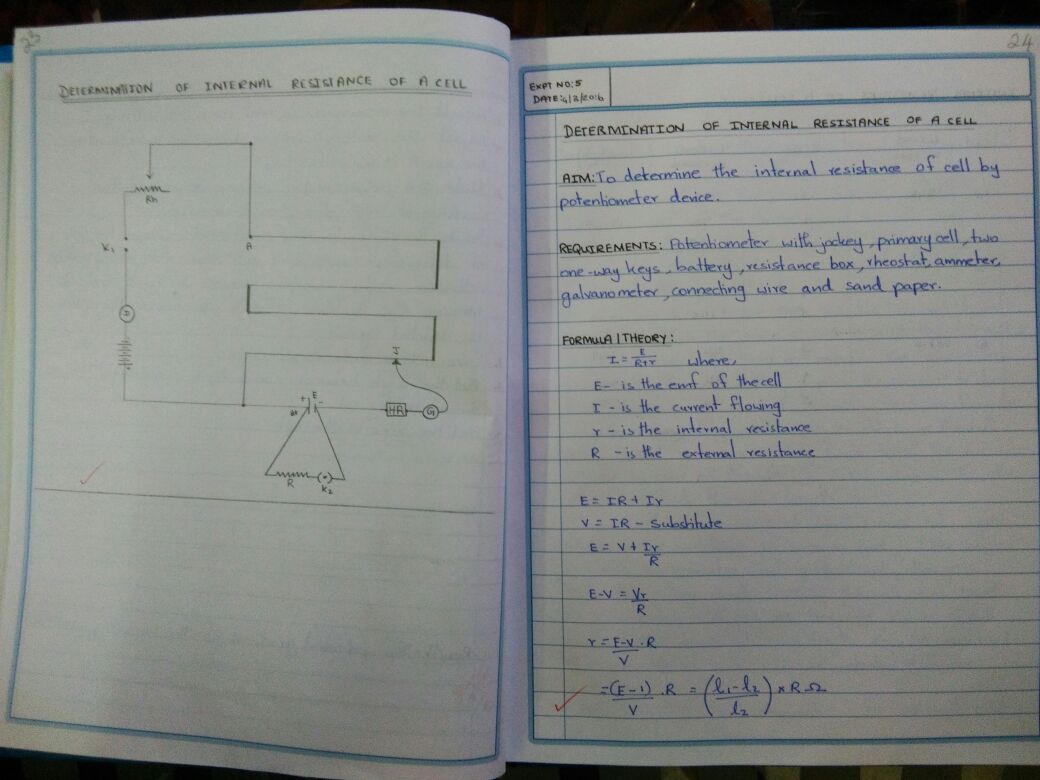 23
DETERMINATION OF INTERNAL RESISTANCE OF A CELL
Rh
K1
A
J
+ E -
HR
G
R
K2
24
EXPT NO: 5
DATE: 4/3/2016
DETERMINATION OF INTERNAL RESISTANCE OF A CELL
AIM: To determine the internal resistance of cell by
potentiometer device.
REQUIREMENTS: Potentiometer with jockey, primary cell, two
one-way keys, battery, resistance box, rheostat, ammeter,
galvanometer, connecting wire and sand paper.
FORMULA | THEORY:
I = E/R+r where,
E- is the emf of the cell
I - is the current flowing
r - is the internal resistance
R - is the external resistance
E = IR + Ir
V = IR - substitute
E = V + Ir/R
E-V = Vr/R
r = E-V/V . R
= (E-1)/V . R = (l1-l2/l2) × R Ω